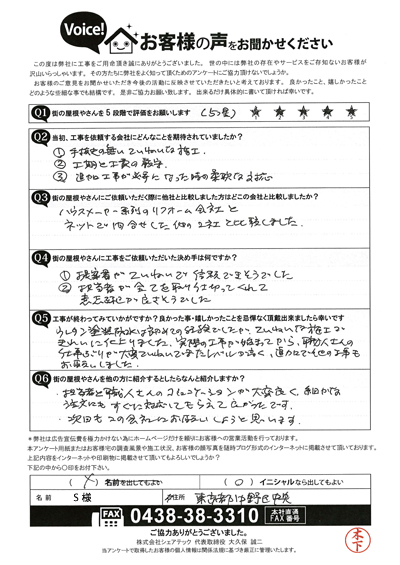 Voice!
お客様の声をお聞かせください
この度は弊社に工事をご用命頂き誠にありがとうございました。世の中には弊社の存在やサービスをご存知ないお客様が
沢山いらっしゃいます。その方たちに弊社をよく知って頂くためのアンケートにご協力頂けないでしょうか。
お客様のご意見をお聞かせいただき今後の活動に反映させていただきたいと考えております。良かったこと、嬉しかったこと
どのような些細な事でも結構です。是非ご協力お願い致します。出来るだけ具体的に書いて頂ければ幸いです。
Q1 街の屋根やさんを5段階で評価をお願いします (5つ星) ★ ★ ★ ★ ★
1 2 3 4 5
Q2 当初、工事を依頼する会社にどんなことを期待されていましたか?
① 手抜きの無いていねいな施工。
② 工期と工費の厳守
③ 追加工事が必要になった時の柔軟な対応
Q3 街の屋根やさんにご依頼いただく際に他社と比較しました方はどこの会社と比較しましたか?
ハウスメーカー系列のリフォーム会社と
ネットで問合せした他の2社と比較しました。
Q4 街の屋根やさんに工事をご依頼いただいた決め手は何ですか?
① 担当者がていねいで信頼できそうでした
② 担当者が全てを取り仕切ってくれて
意志疎通が良さそうでした
Q5 工事が終わってみていかがですか?良かった事・嬉しかったことを忌憚なく頂戴出来ましたら幸いです
ウレタン塗装防水は初めての経験でしたが、ていねいな施工で
きれいに仕上りました。実際の工事が始まってから、職人さんの
仕事ぶりが大変ていねいで
お願いしました。
Q6 街の屋根やさんを他の方に紹介するとしたらなんと紹介しますか?
担当者と職人さんのコミュニケーションが大変良く、細かな
注文にもすぐに対応してもらえて良かったです。
次回もこの会社にお願いしようと思います。
*弊社は広告宣伝費を極力かけない為にホームページだけを頼りにお客様への営業活動を行っております。
本アンケート用紙またはお客様宅の調査風景や施工状況、お客様の顔写真を随時ブログ形式のインターネットに掲載させて頂いております。
上記内容をインターネットや印刷物に掲載させて頂いてもよろしいでしょうか?
下記の中から○印をお付下さい。
( ) 名前を出してもよい ( ○ ) イニシャルなら出してもよい
名前 S様 ご住所 東京都
FAX 0438-38-3310 本社直通 FAX番号
ご協力ありがとうございました。
株式会社シェアテック 代表取締役 大久保 誠二
当アンケートで取得したお客様の個人情報は関係法規に基づき厳正に管理いたします。
木下